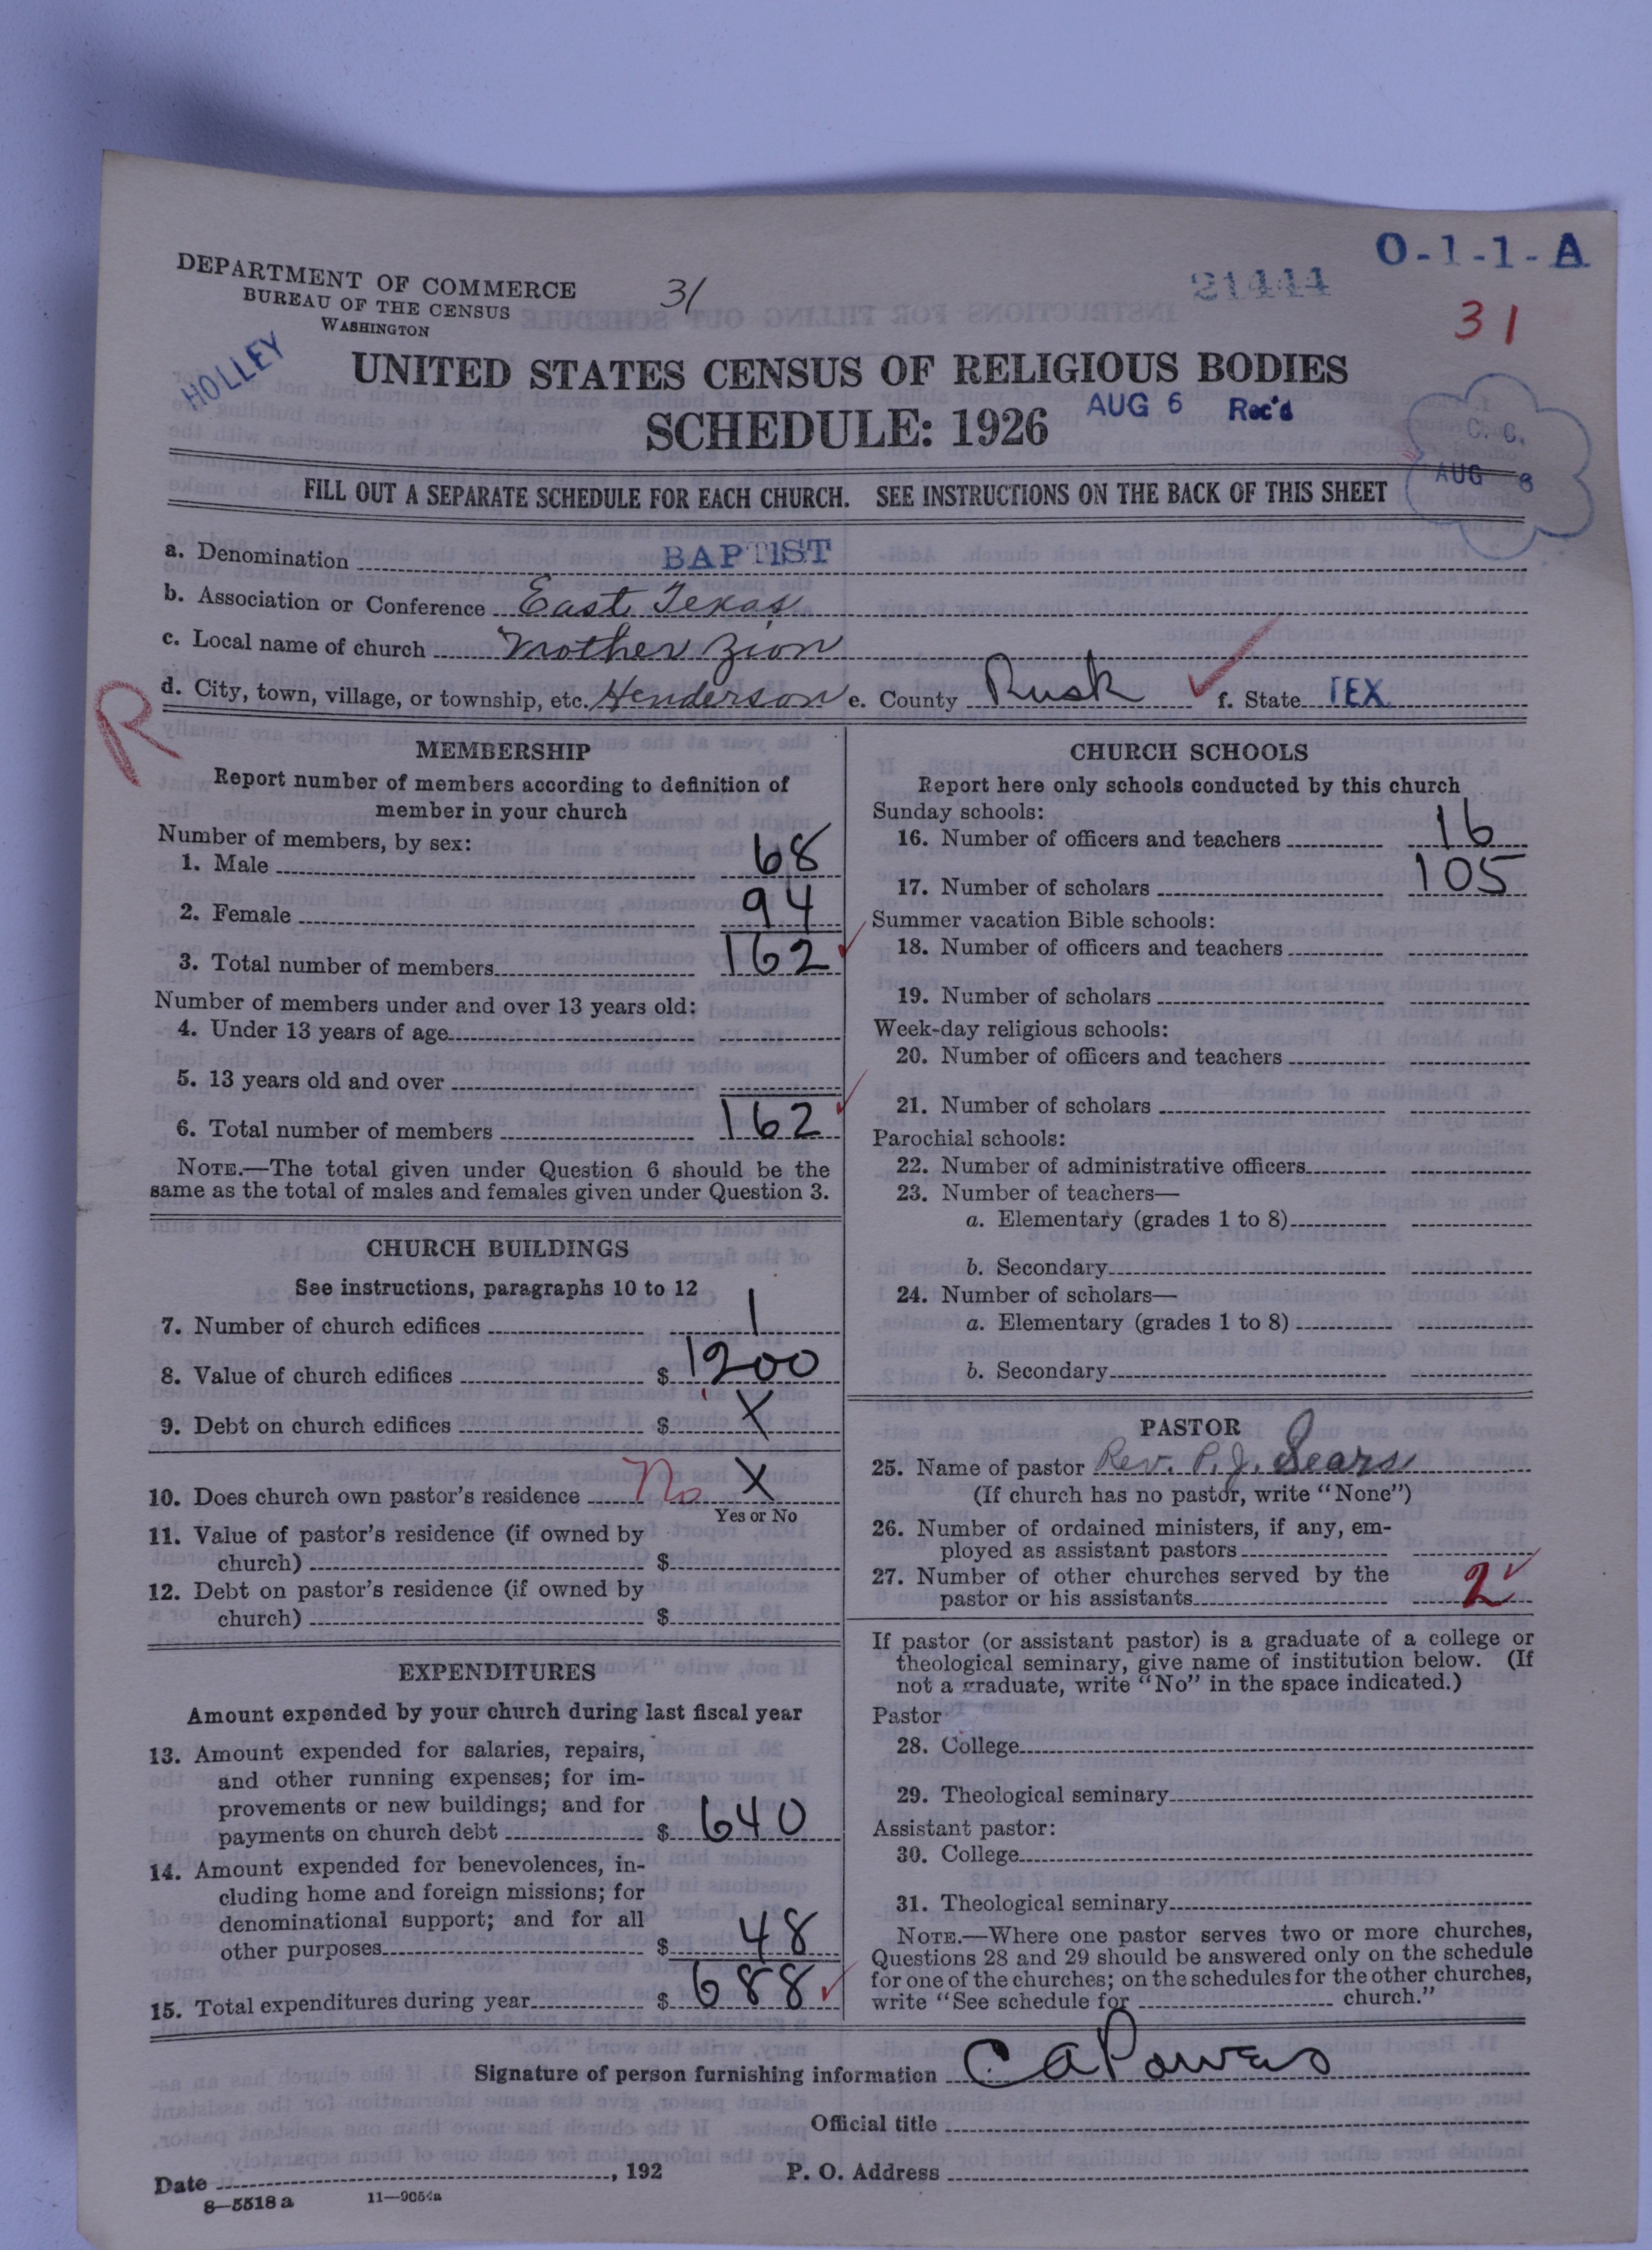 DEPARTMENT OF COMMERCE
BUREAU OF THE CENSUS
WASHINGTON
31
21444
O-1-1-A
31
HOLLEY
UNITED STATES CENSUS OF RELIGIOUS BODIES
SCHEDULE: 1926
AUG 6 Rec'd
C. C.
AUG 6
FILL OUT A SEPARATE SCHEDULE FOR EACH CHURCH. SEE INSTRUCTIONS ON THE BACK OF THIS SHEET
a. Denomination BAPTIST
b. Association or Conference East Texas
c. Local name of church Mother Zion
d. City, town, village, or township, etc. Henderson e. County Rusk f. State TEX
R
MEMBERSHIP
Report number of members according to definition of
member in your church
Number of members, by sex:
1. Male 68
2. Female 94
3. Total number of members 162
Number of members under and over 13 years old:
4. Under 13 years of age
5. 13 years old and over
6. Total number of members 162
NOTE.—The total given under Question 6 should be the
same as the total of males and females given under Question 3.
CHURCH BUILDINGS
See instructions, paragraphs 10 to 12
7. Number of church edifices 1
8. Value of church edifices $ 1200
9. Debt on church edifices $ X
10. Does church own pastor's residence No X
Yes or No
11. Value of pastor's residence (if owned by
church) $
12. Debt on pastor's residence (if owned by
church) $
EXPENDITURES
Amount expended by your church during last fiscal year
13. Amount expended for salaries, repairs,
and other running expenses; for im-
provements or new buildings; and for
payments on church debt $ 640
14. Amount expended for benevolences, in-
cluding home and foreign missions; for
denominational support; and for all
other purposes $ 48
15. Total expenditures during year $ 688
CHURCH SCHOOLS
Report here only schools conducted by this church
Sunday schools:
16. Number of officers and teachers 16
17. Number of scholars 105
Summer vacation Bible schools:
18. Number of officers and teachers
19. Number of scholars
Week-day religious schools:
20. Number of officers and teachers
21. Number of scholars
Parochial schools:
22. Number of administrative officers
23. Number of teachers—
a. Elementary (grades 1 to 8)
b. Secondary
24. Number of scholars—
a. Elementary (grades 1 to 8)
b. Secondary
PASTOR
25. Name of pastor Rev. P. J. Sears
(If church has no pastor, write "None")
26. Number of ordained ministers, if any, em-
ployed as assistant pastors
27. Number of other churches served by the
pastor or his assistants 2
If pastor (or assistant pastor) is a graduate of a college or
theological seminary, give name of institution below. (If
not a graduate, write "No" in the space indicated.)
Pastor
28. College
29. Theological seminary
Assistant pastor:
30. College
31. Theological seminary
NOTE.—Where one pastor serves two or more churches,
Questions 28 and 29 should be answered only on the schedule
for one of the churches; on the schedules for the other churches,
write "See schedule for church."
Signature of person furnishing information C A Powers
Official title
Date , 192 P. O. Address
8—5518 a 11—9054a